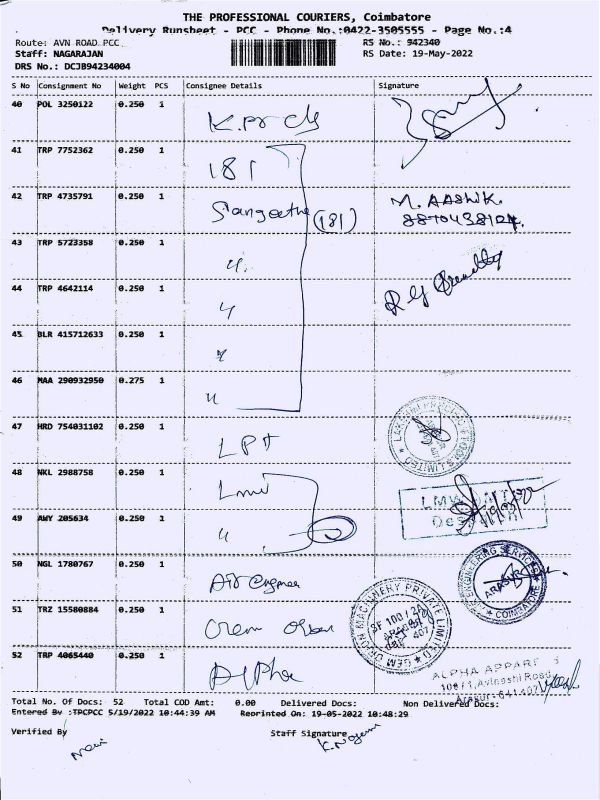 THE PROFESSIONAL COURIERS, Coimbatore
Delivery Runsheet - PCC - Phone No.:0422-3505555 - Page No.:4
Route: AVN ROAD PCC RS No.: 942340
Staff: NAGARAJAN RS Date: 19-May-2022
DRS No.: DCJB94234004
S No Consignment No Weight PCS Consignee Details Signature
40 POL 3250122 0.250 1
41 TRP 7752362 0.250 1 181
42 TRP 4735791 0.250 1 Sangeetha (181) M. AASHIK.
43 TRP 5723358 0.250 1 u.
44 TRP 4642114 0.250 1 u
45 BLR 415712633 0.250 1
46 MAA 290932950 0.275 1 u
47 HRD 754031102 0.250 1 LPT
48 NKL 2988758 0.250 1 Lmw LMW
49 AWY 205634 0.250 1 u
50 NGL 1780767 0.250 1 ENGINEERING SERVICES COIMBATORE
51 TRZ 15580884 0.250 1 Gem GEM ORION MACHINERY PRIVATE LIMITED
SF 100/2A
52 TRP 4065440 0.250 1 Alpha ALPHA APPAREL
100/1, Avinashi Road,
Total No. Of Docs: 52 Total COD Amt: 0.00 Delivered Docs: Non Delivered Docs:
Entered By :TPCPCC 5/19/2022 10:44:39 AM Reprinted On: 19-05-2022 10:48:29
Verified By Staff Signature